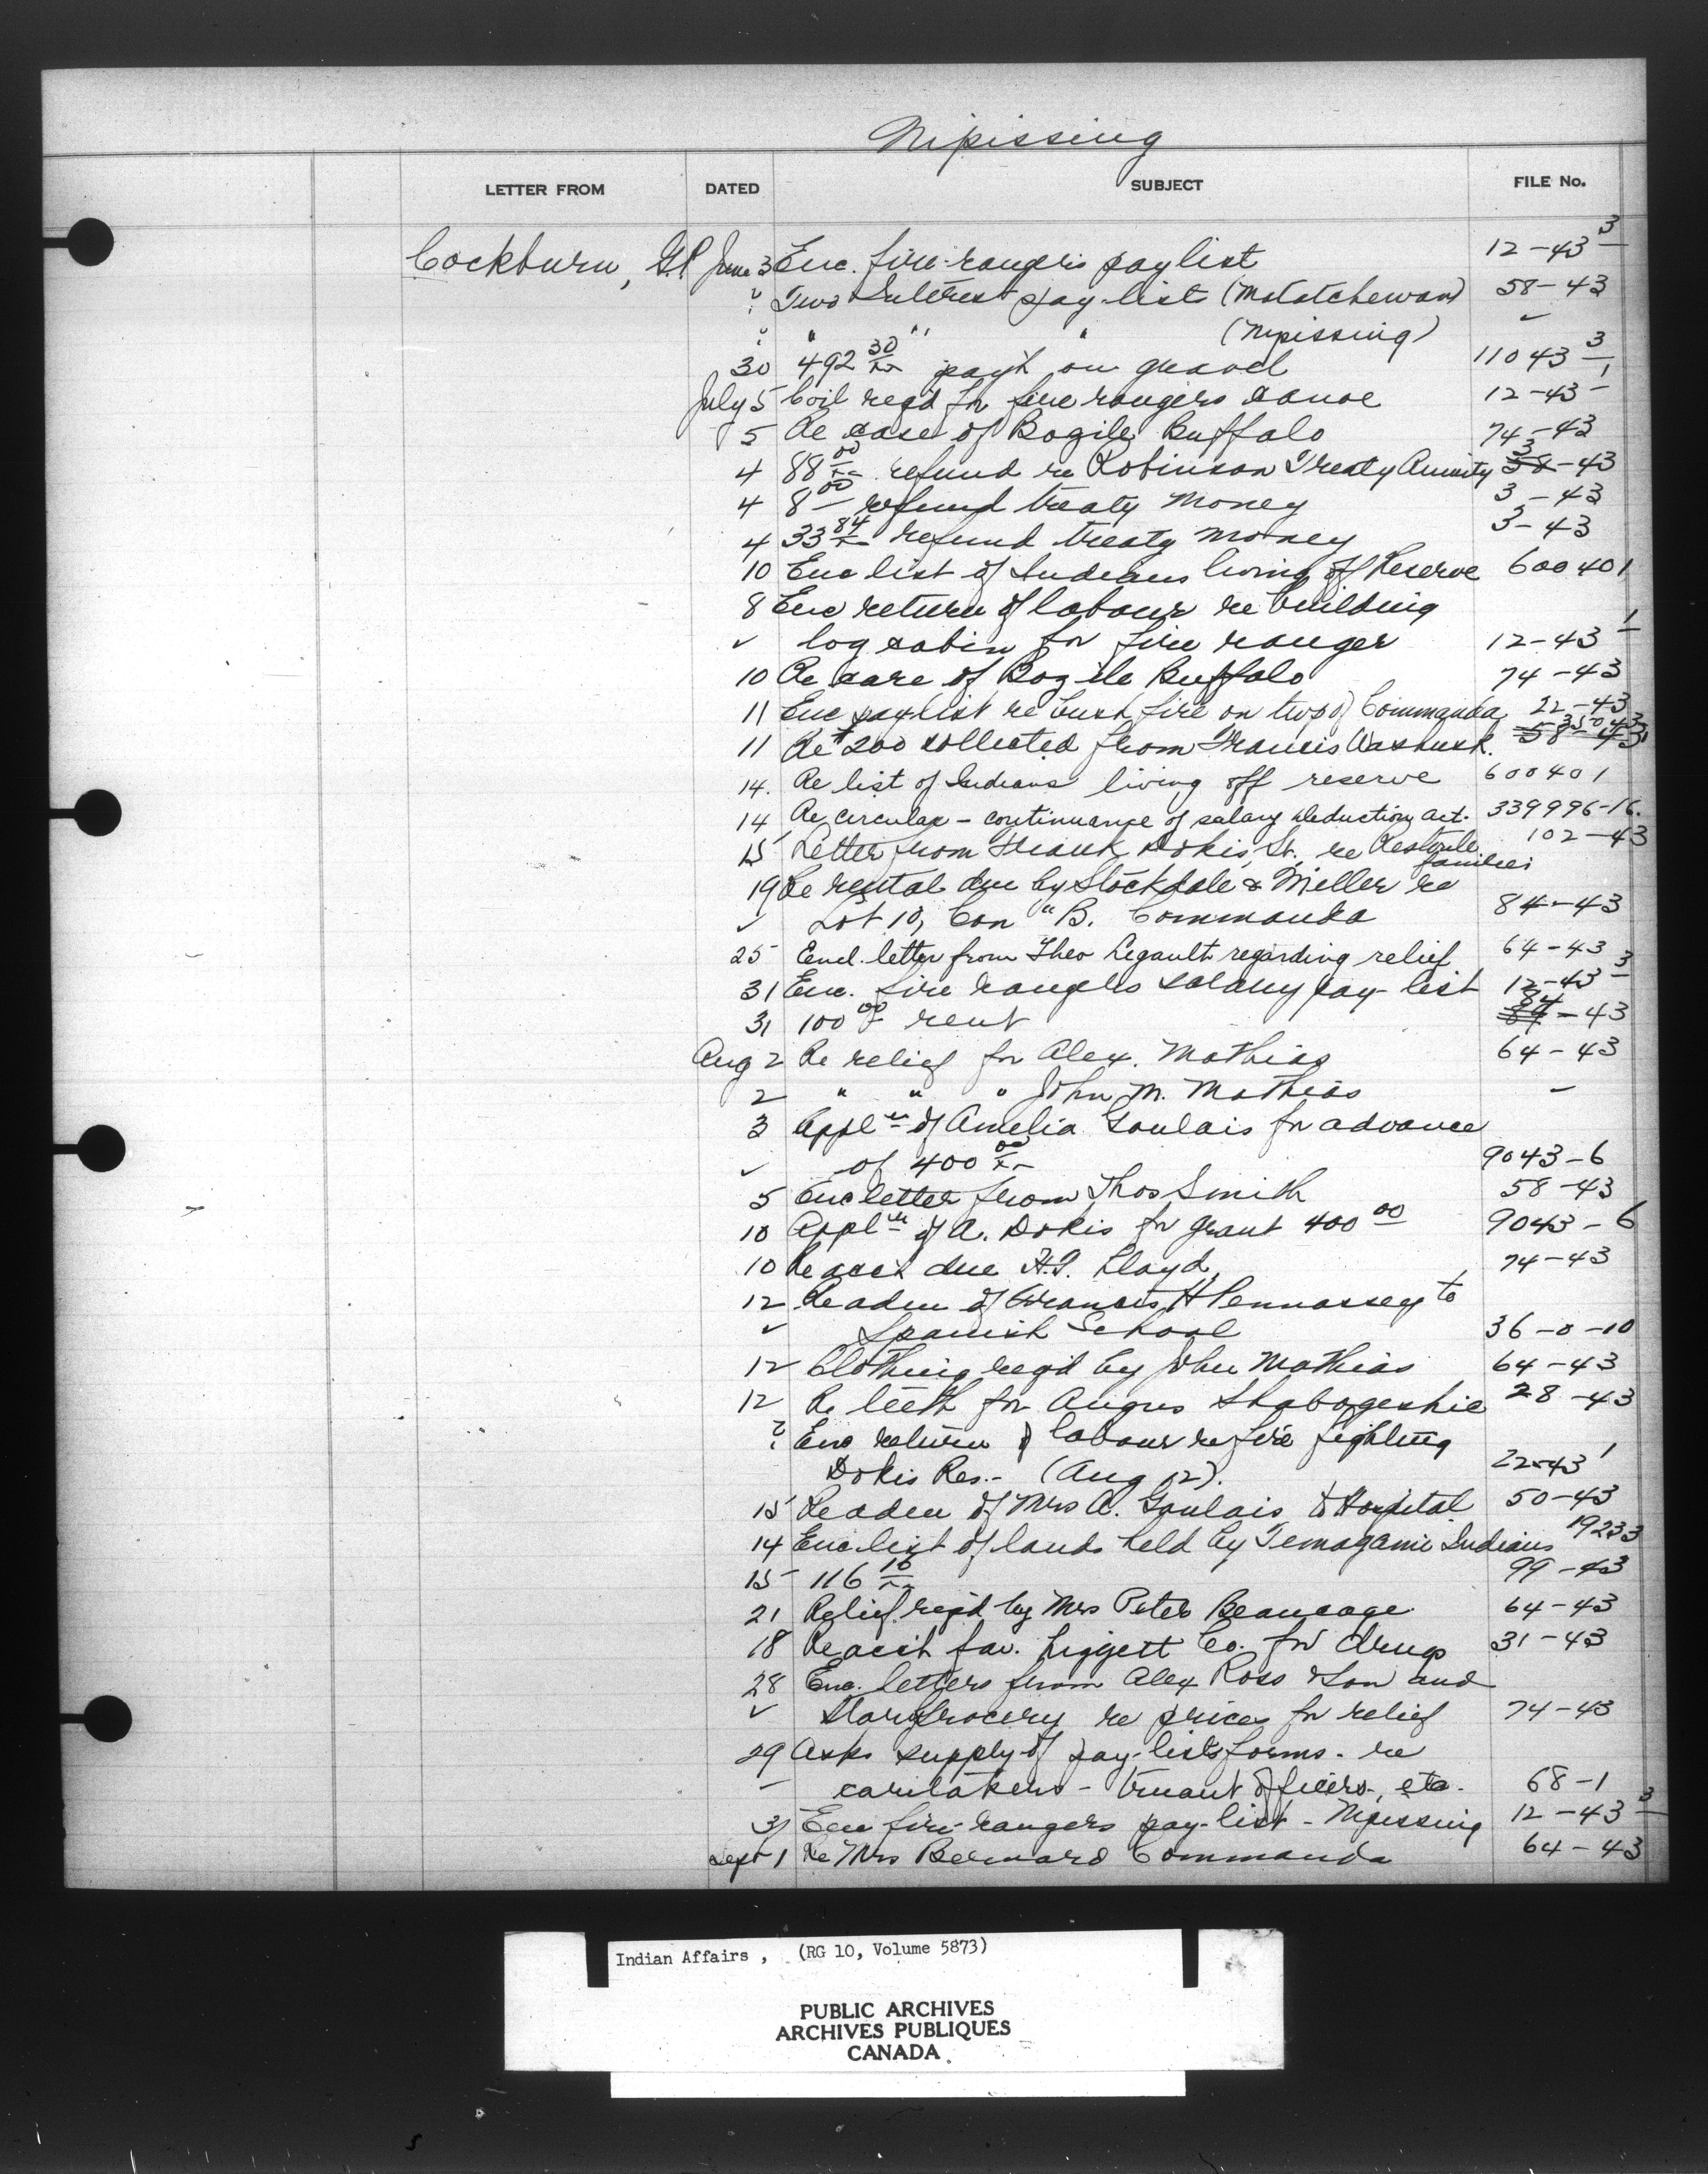 Nipissing
LETTER FROM DATED SUBJECT FILE No.
Cockburn, G.P. June 3 Enc. fire-rangers pay list 12-43 3
? Two Interest pay-lists (Matatchewan) 58-43
? " " " (Nipissing) ✓
30 492 30/xx pay't on gravel 11043 3
July 5 Coil reqd for fire rangers canoe 12-43 1
5 Re case of Bazile Buffalo 74-43
4 88 00/xx refund re Robinson Treaty Annuity 3-43
4 8 00 refund treaty money 3-43
4 33 84/xx refund treaty money 3-43
10 Enc list of Indians living off Reserve 600401
8 Enc return of labour re building
✓ log cabin for fire ranger 12-43 1
10 Re care of Bazile Buffalo 74-43
11 Enc pay-list re bush fire on twp of Commanda 22-43
11 Re $200 collected from Francis
14. Re list of Indians living off reserve 600401
14 Re circular - continuance of salary deduction act. 339996-16.
15 Letter from Frank Dokis, Sr. re Restoule families 102-43
19 Re rental due by Stockdale & Miller re
✓ Lot 10, Con "B. Commanda 84-43
25 Encl. letter from Theo Legault regarding relief 64-43
31 Enc. fire rangers salary pay-list 12-43 3
31 100 00 rent 84-43
Aug 2 Re relief for Alex. Mathias 64-43
2 " " " John M. Mathias -
3 Appl'n of Amelia Goulais for advance
✓ of 400 00/xx 9043-6
5 Enc letter from Thos Smith 58-43
10 Appl'n of A. Dokis for grant 400 00 9043-6
10 Re acct due H.J. Lloyd 74-43
12 Re adm of Francis H Pennassey to
✓ Spanish School 36-0-10
12 Clothing reqd by John Mathias 64-43
12 Re teeth for Angus Shabogeshic 28-43
? Enc return of labour re fire fighting
Dokis Res.- (Aug 12). 22-43 1
15 Re adm of Mrs A. Goulais to Hospital 50-43
14 Enc list of lands held by Temagami Indians 19233
15 116 10/xx 99-43
21 Relief reqd by Mrs Peter Beaucage 64-43
18 Re acct fav. Liggett Co. for drugs 31-43
28 Enc. letters from Alex Ross & Son and
✓ Star Grocery re prices for relief 74-43
29 Asks supply of pay-lists forms - re
- caretakers - truant officers, etc. 68-1
31 Enc fire-rangers pay-list - Nipissing 12-43 3
Sept 1 Re Mrs Bernard Commanda 64-43
Indian Affairs , (RG 10, Volume 5873)
PUBLIC ARCHIVES
ARCHIVES PUBLIQUES
CANADA